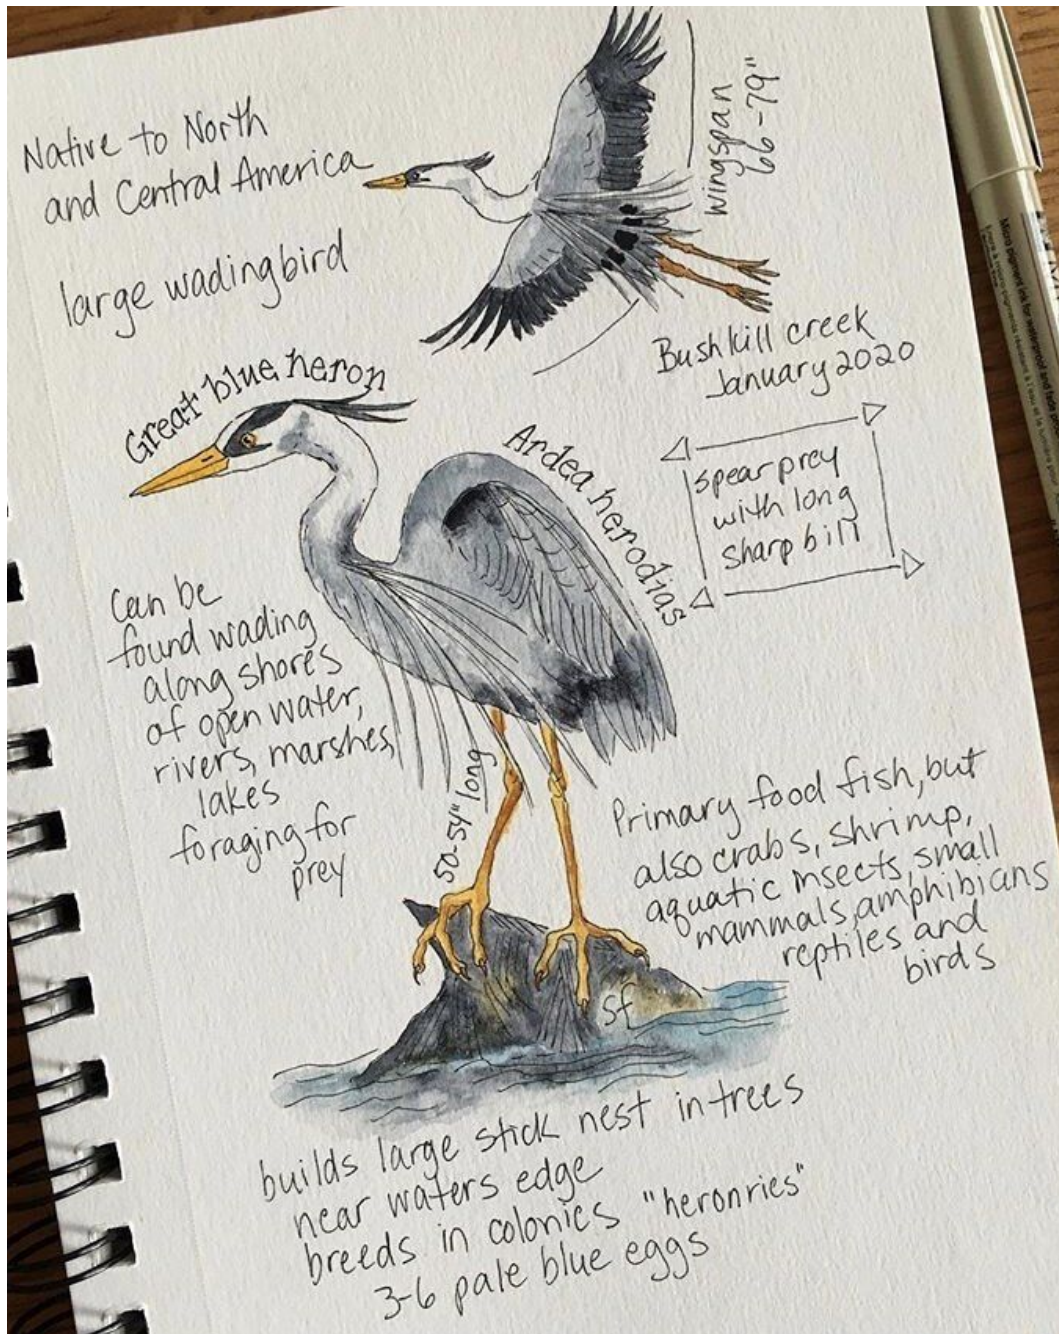 Native to North
and Central America
large wadingbird
66-79"
wingspan
Bushkill creek
January 2020
Great blue heron
Ardea herodias
spear prey
with long
sharp bill
Can be
found wading
along shores
of open water,
rivers, marshes,
lakes
foraging for
prey
50-54" long
Primary food fish, but
also crabs, shrimp,
aquatic insects, small
mammals, amphibians
reptiles and
birds
sf
builds large stick nest in trees
near waters edge
breeds in colonies "heronries"
3-6 pale blue eggs
Micro pigment ink for waterproof and fade